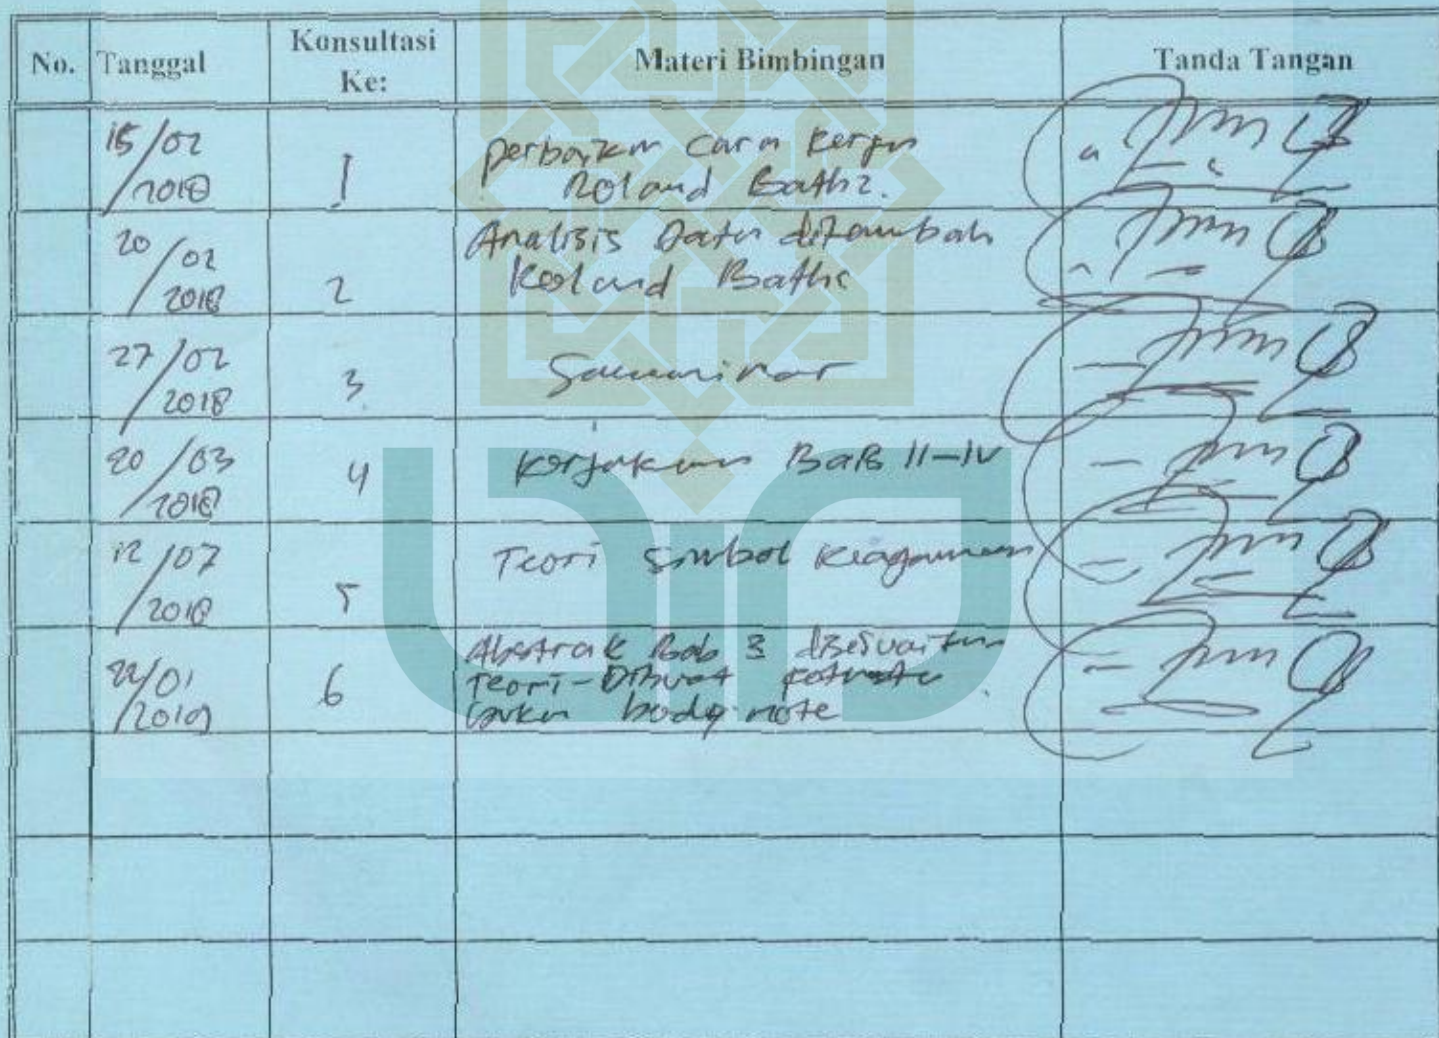 No. Tanggal Konsultasi Ke: Materi Bimbingan Tanda Tangan
15/02/2018 1 perbaikan cara kerja
Roland Baths.
20/02/2018 2 Analisis Data ditambah
Roland Baths
27/02/2018 3 Seminar
20/03/2018 4 kerjakan BaB II-IV
12/07/2018 5 Teori simbol keagamaan
22/01/2019 6 Abstrak Bab 3 disesuaikan
teori - Dibuat
bukan body note